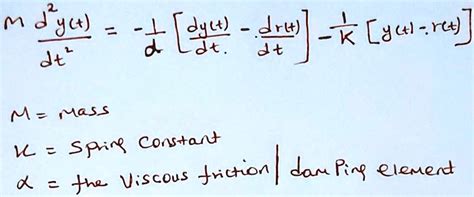 M d²y(t)/dt² = -1/α [dy(t)/dt - dr(t)/dt] - 1/K [y(t) - r(t)]
M = Mass
K = Spring Constant
α = the Viscous friction | damping element